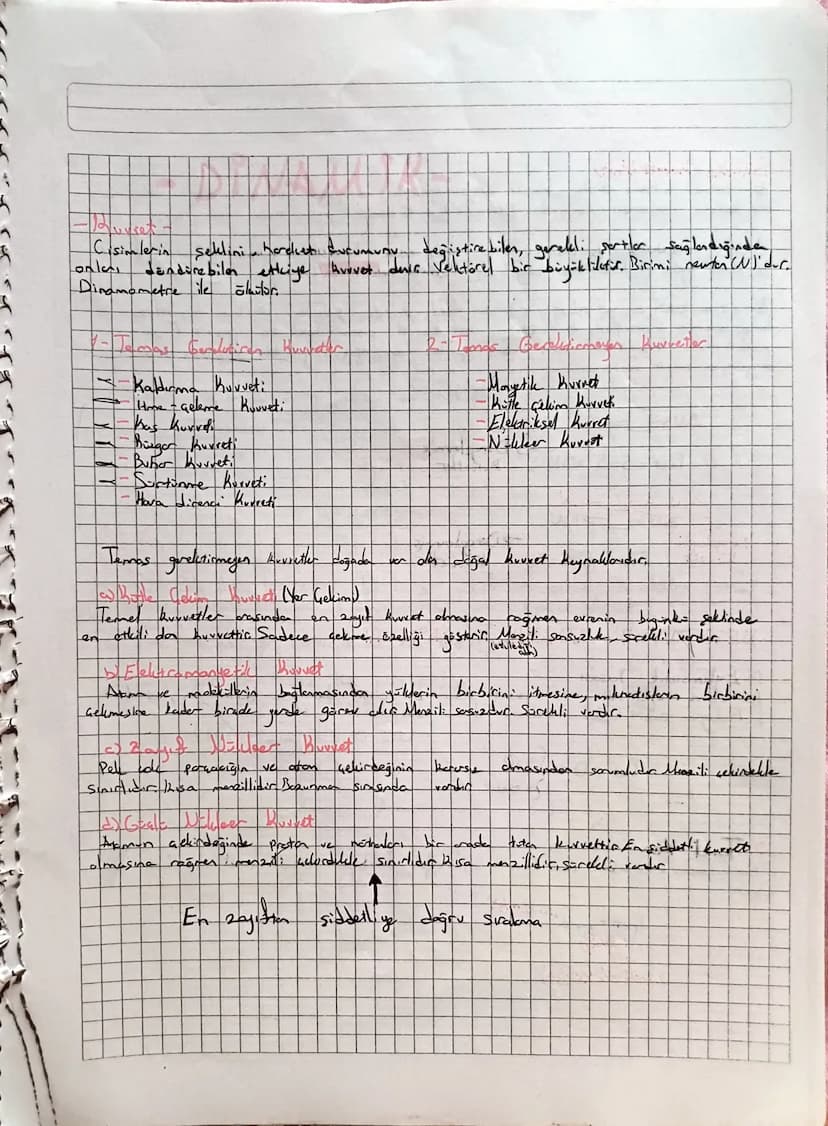 - DİNAMİK -
- Kuvvet -
Cisimlerin şeklini, hareket durumunu değiştirebilen, gerekli şartlar sağlandığında
onları döndürebilen etkiye kuvvet denir. Vektörel bir büyüklüktür. Birimi newton (N)'dur.
Dinamometre ile ölçülür.
1- Temas Gerektiren Kuvvetler
2- Temas Gerektirmeyen Kuvvetler
- Kaldırma Kuvveti
- İtme - çekme Kuvveti
- Kas Kuvveti
- Rüzgar Kuvveti
- Buhar Kuvveti
- Sürtünme Kuvveti
- Hava direnci Kuvveti
- Manyetik Kuvvet
- Kütle çekim Kuvveti
- Elektriksel Kuvvet
- Nükleer Kuvvet
Temas gerektirmeyen kuvvetler doğada var olan doğal kuvvet kaynaklarıdır.
a) Kütle Çekim Kuvveti (Yer Çekimi)
Temel kuvvetler arasından en zayıf kuvvet olmasına rağmen evrenin bugünkü şeklinde
en etkili olan kuvvettir. Sadece çekme özelliği gösterir. Menzili sonsuzluk, sürekli vardır.
b) Elektromanyetik Kuvvet
Atom ve moleküllerin bağlanmasından yüklerin birbirini itmesine, mıknatısların birbirini
çekmesine kadar birçok yerde görev alır. Menzili sonsuzdur. Sürekli vardır.
c) Zayıf Nükleer Kuvvet
Pek çok parçacığın ve atom çekirdeğinin kararsız olmasından sorumludur. Menzili çekirdekle
sınırlıdır. Kısa menzillidir. Bozunma sırasında vardır
d) Güçlü Nükleer Kuvvet
Atomun çekirdeğinde proton ve nötronları bir arada tutan kuvvettir. En şiddetli kuvvet
olmasına rağmen menzili çekirdekle sınırlıdır. Kısa menzillidir, sürekli vardır
En zayıftan şiddetliye doğru sıralama